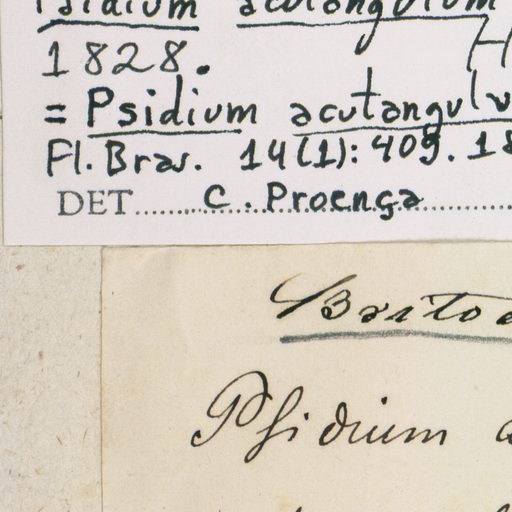 Psidium acutangulum
1828. H
= Psidium acutangulu
Fl. Bras. 14(1): 409. 18
DET C. Proença
Britoa
Psidium a